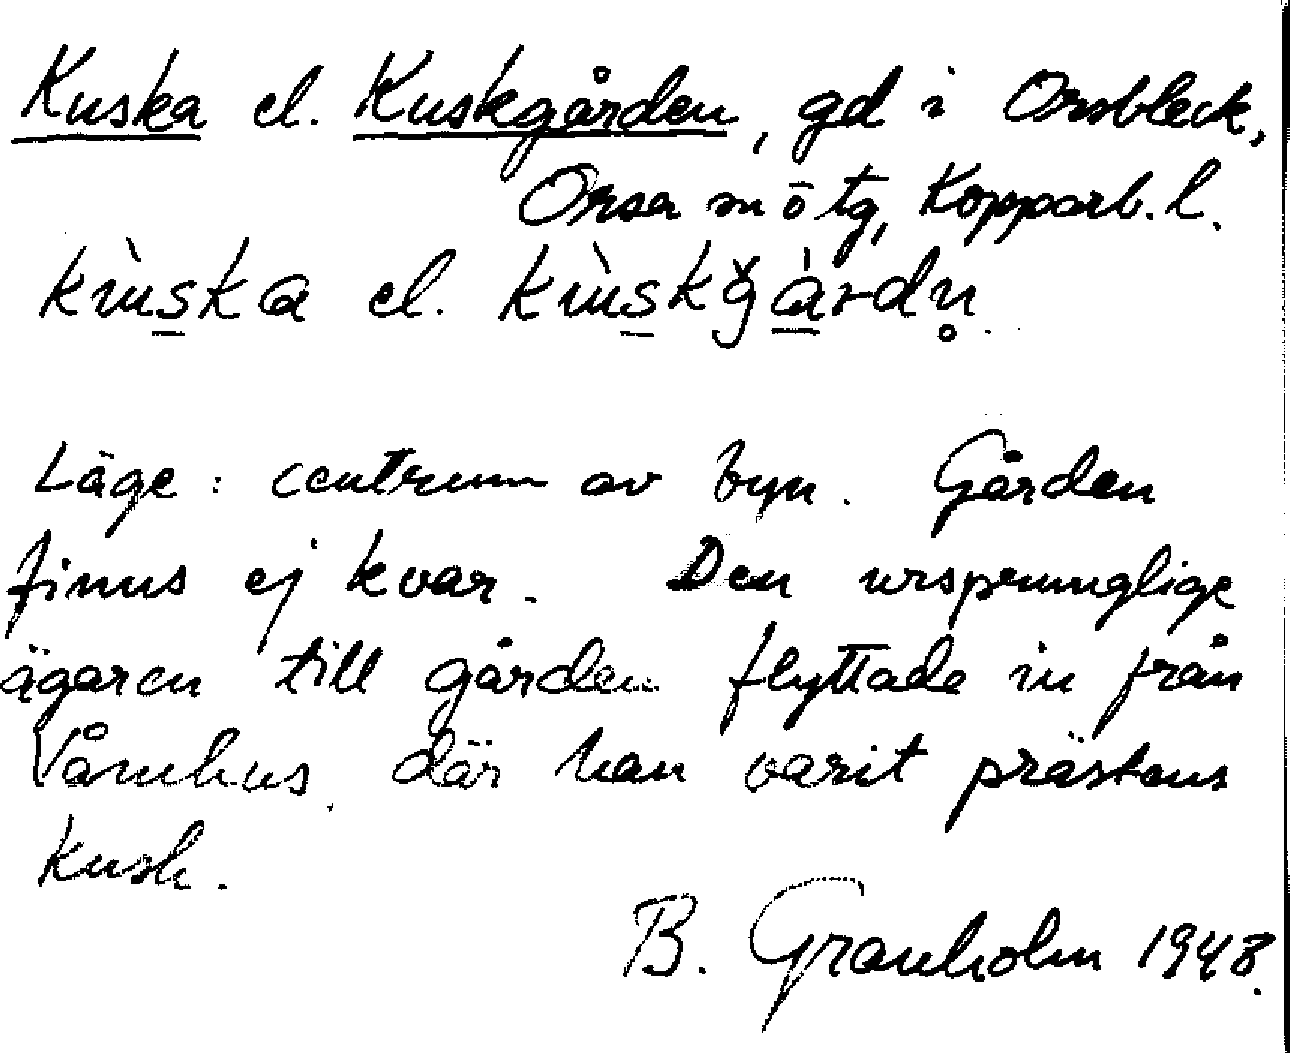 Kuska el. Kuskgården, gd i Orsbleck,
Orsa sn ö tg, Kopparb. l.
kùs̲ka el. kùs̲kǧà̲rdn̥.
Läge: centrum av byn. Gården
finns ej kvar. Den ursprunglige
ägaren till gården flyttade in från
Våmhus, där han varit prästens
kusk.
B. Granholm 1948.